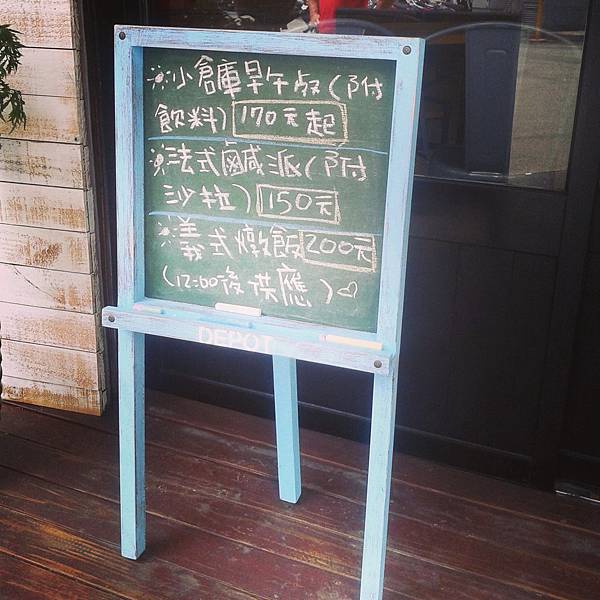 小倉庫早午餐(附
飲料) 170元起
法式鹹派(附
沙拉) 150元
義式燉飯 200元
(12:00後供應)
DEPOT